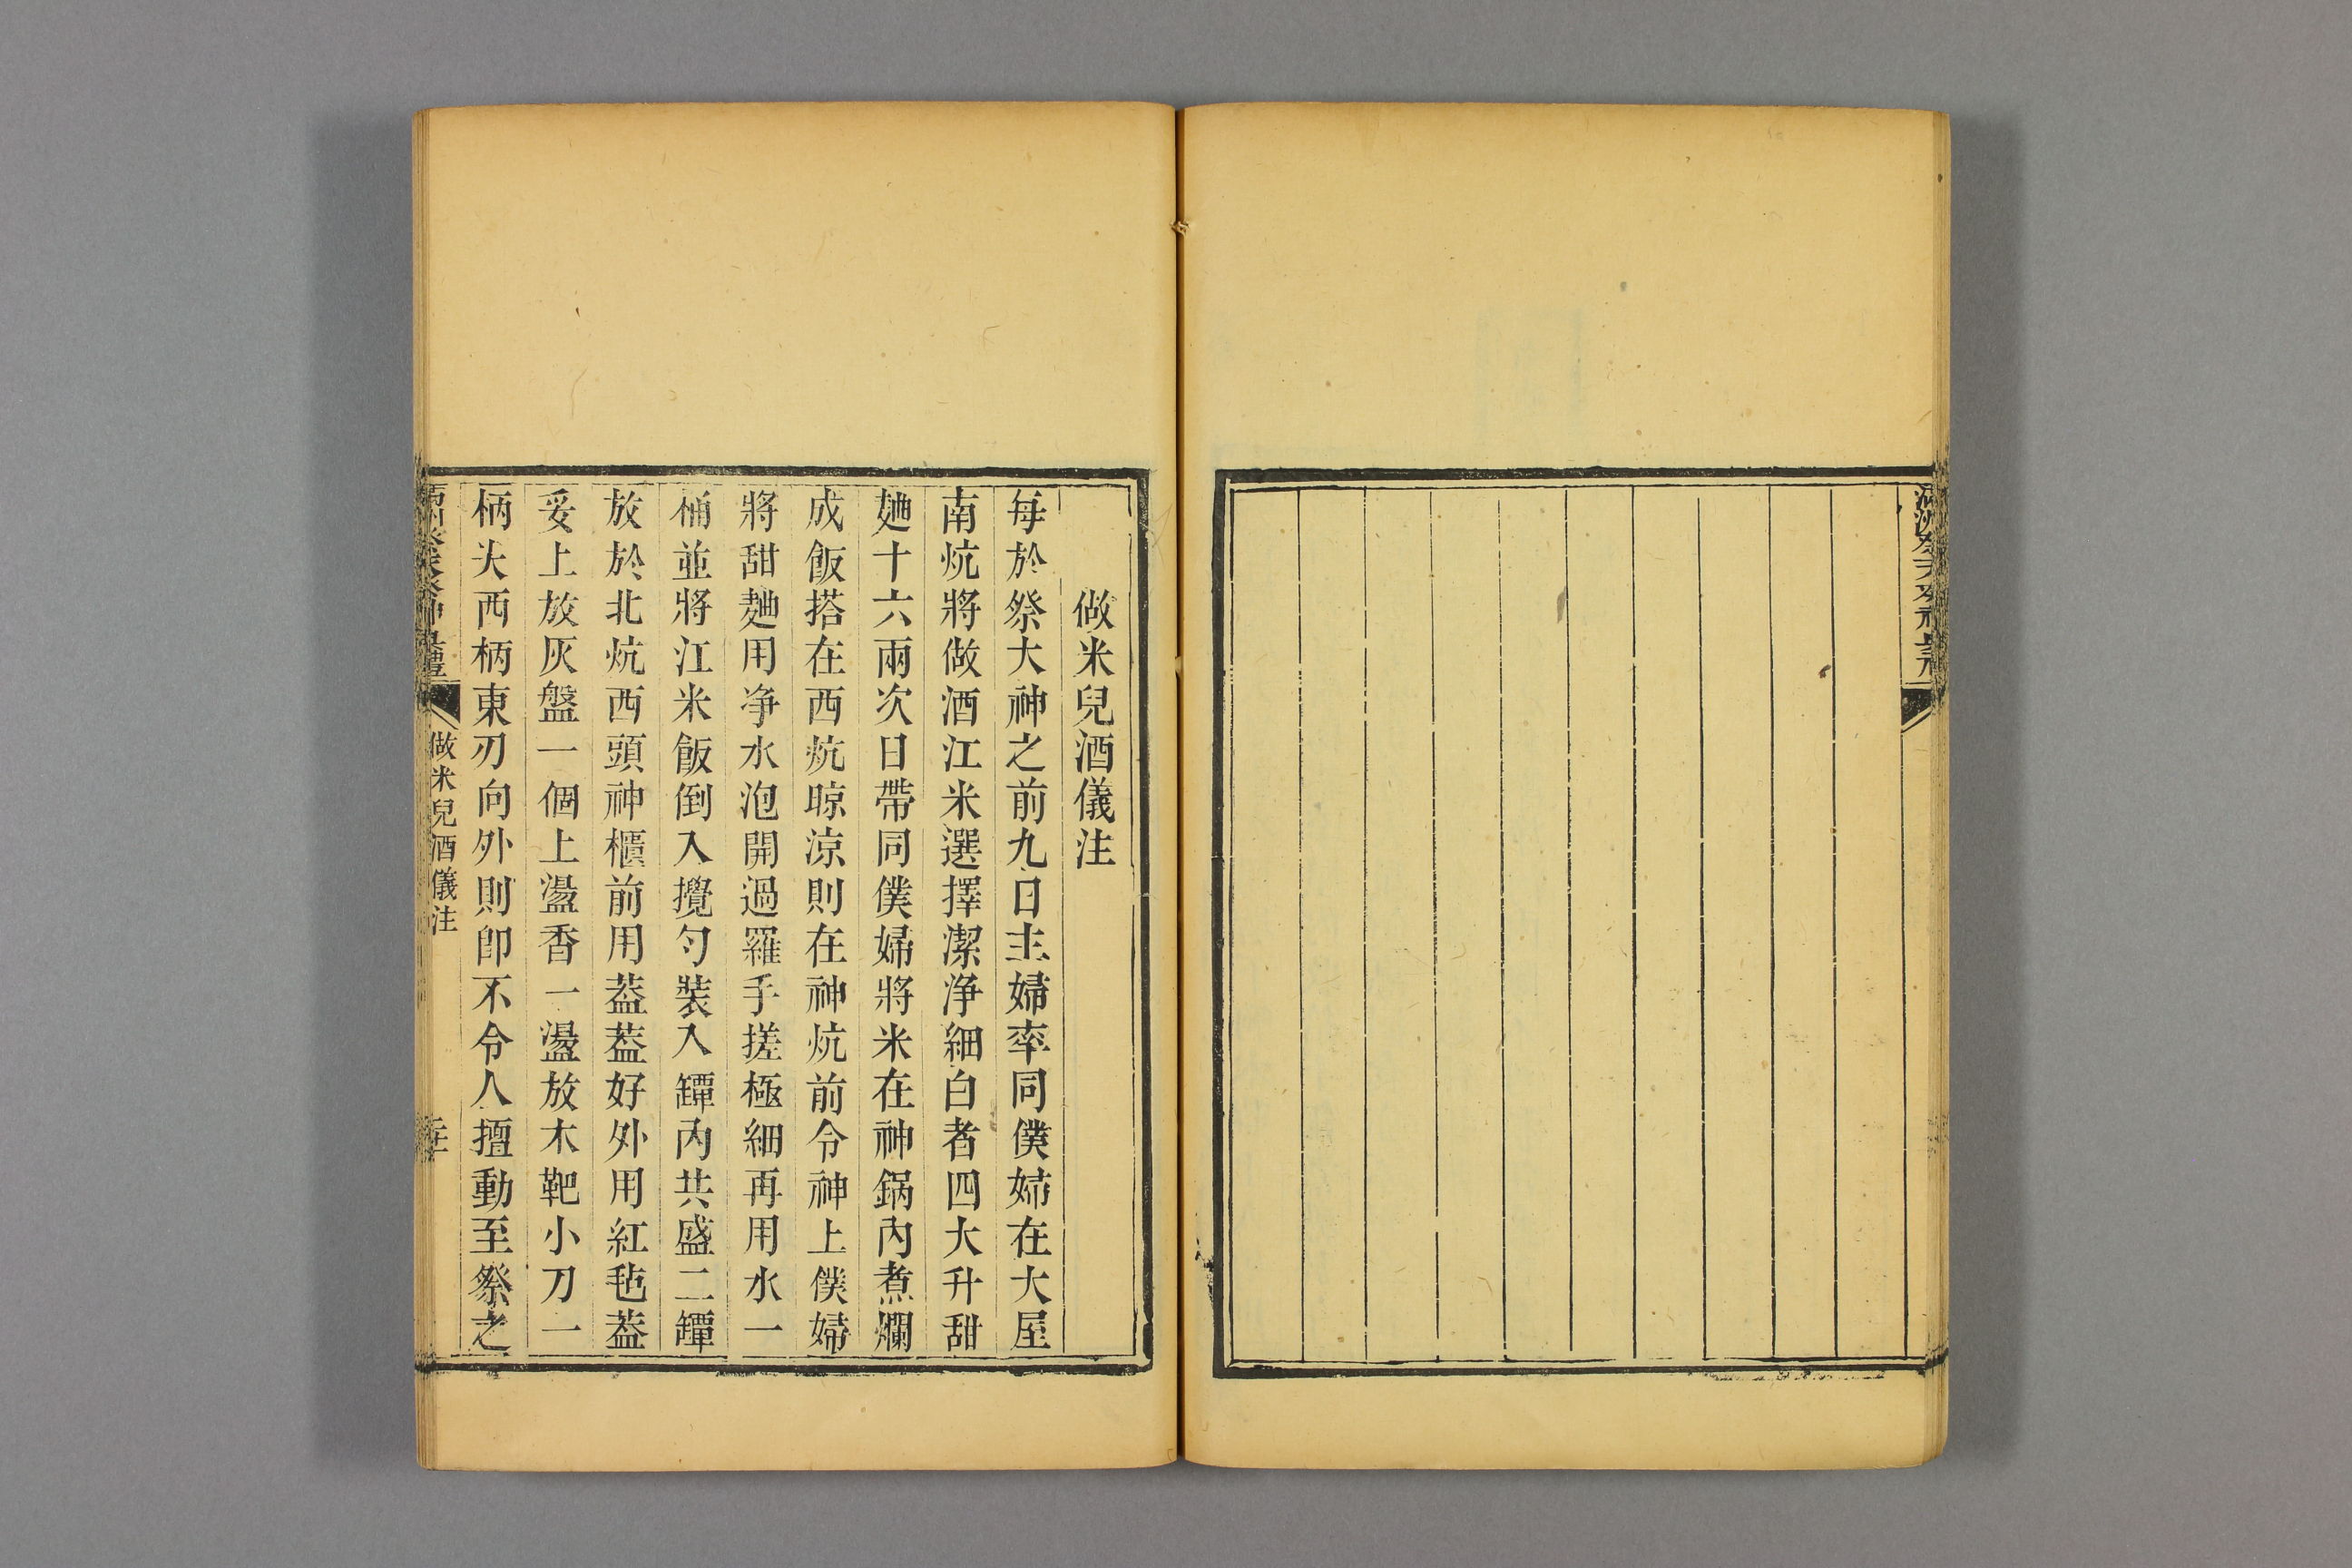 做米兒酒儀注
每於祭大神之前九日主婦率同僕婦在大屋
南炕將做酒江米選擇潔浄細白者四大升甜
麯十六兩次日帶同僕婦將米在神鍋內煮爛
成飯搭在西炕晾涼則在神炕前令神上僕婦
將甜麯用浄水泡開過羅手搓極細再用水一
桶並將江米飯倒入攪勻裝入罈內共盛二罈
放於北炕西頭神櫃前用葢葢好外用紅毡葢
妥上放灰盤一個上盪香一盪放木靶小刀一
柄尖西柄東刃向外則卽不令人擅動至祭之
做米兒酒儀注